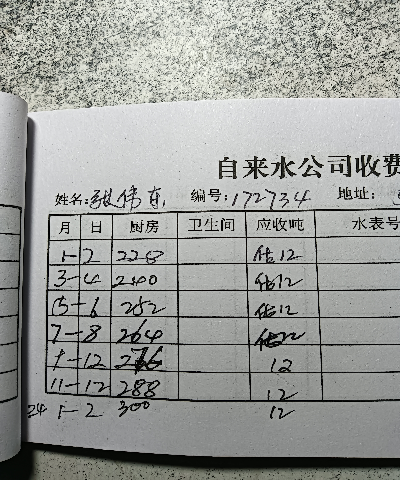 自来水公司收费
姓名:张伟东 编号:172734 地址:
月 日 厨房 卫生间 应收吨 水表号
1-2 228 估12
3-4 240 估12
5-6 252 估12
7-8 264 估12
9-12 276 12
11-12 288 12
24 1-2 300 12